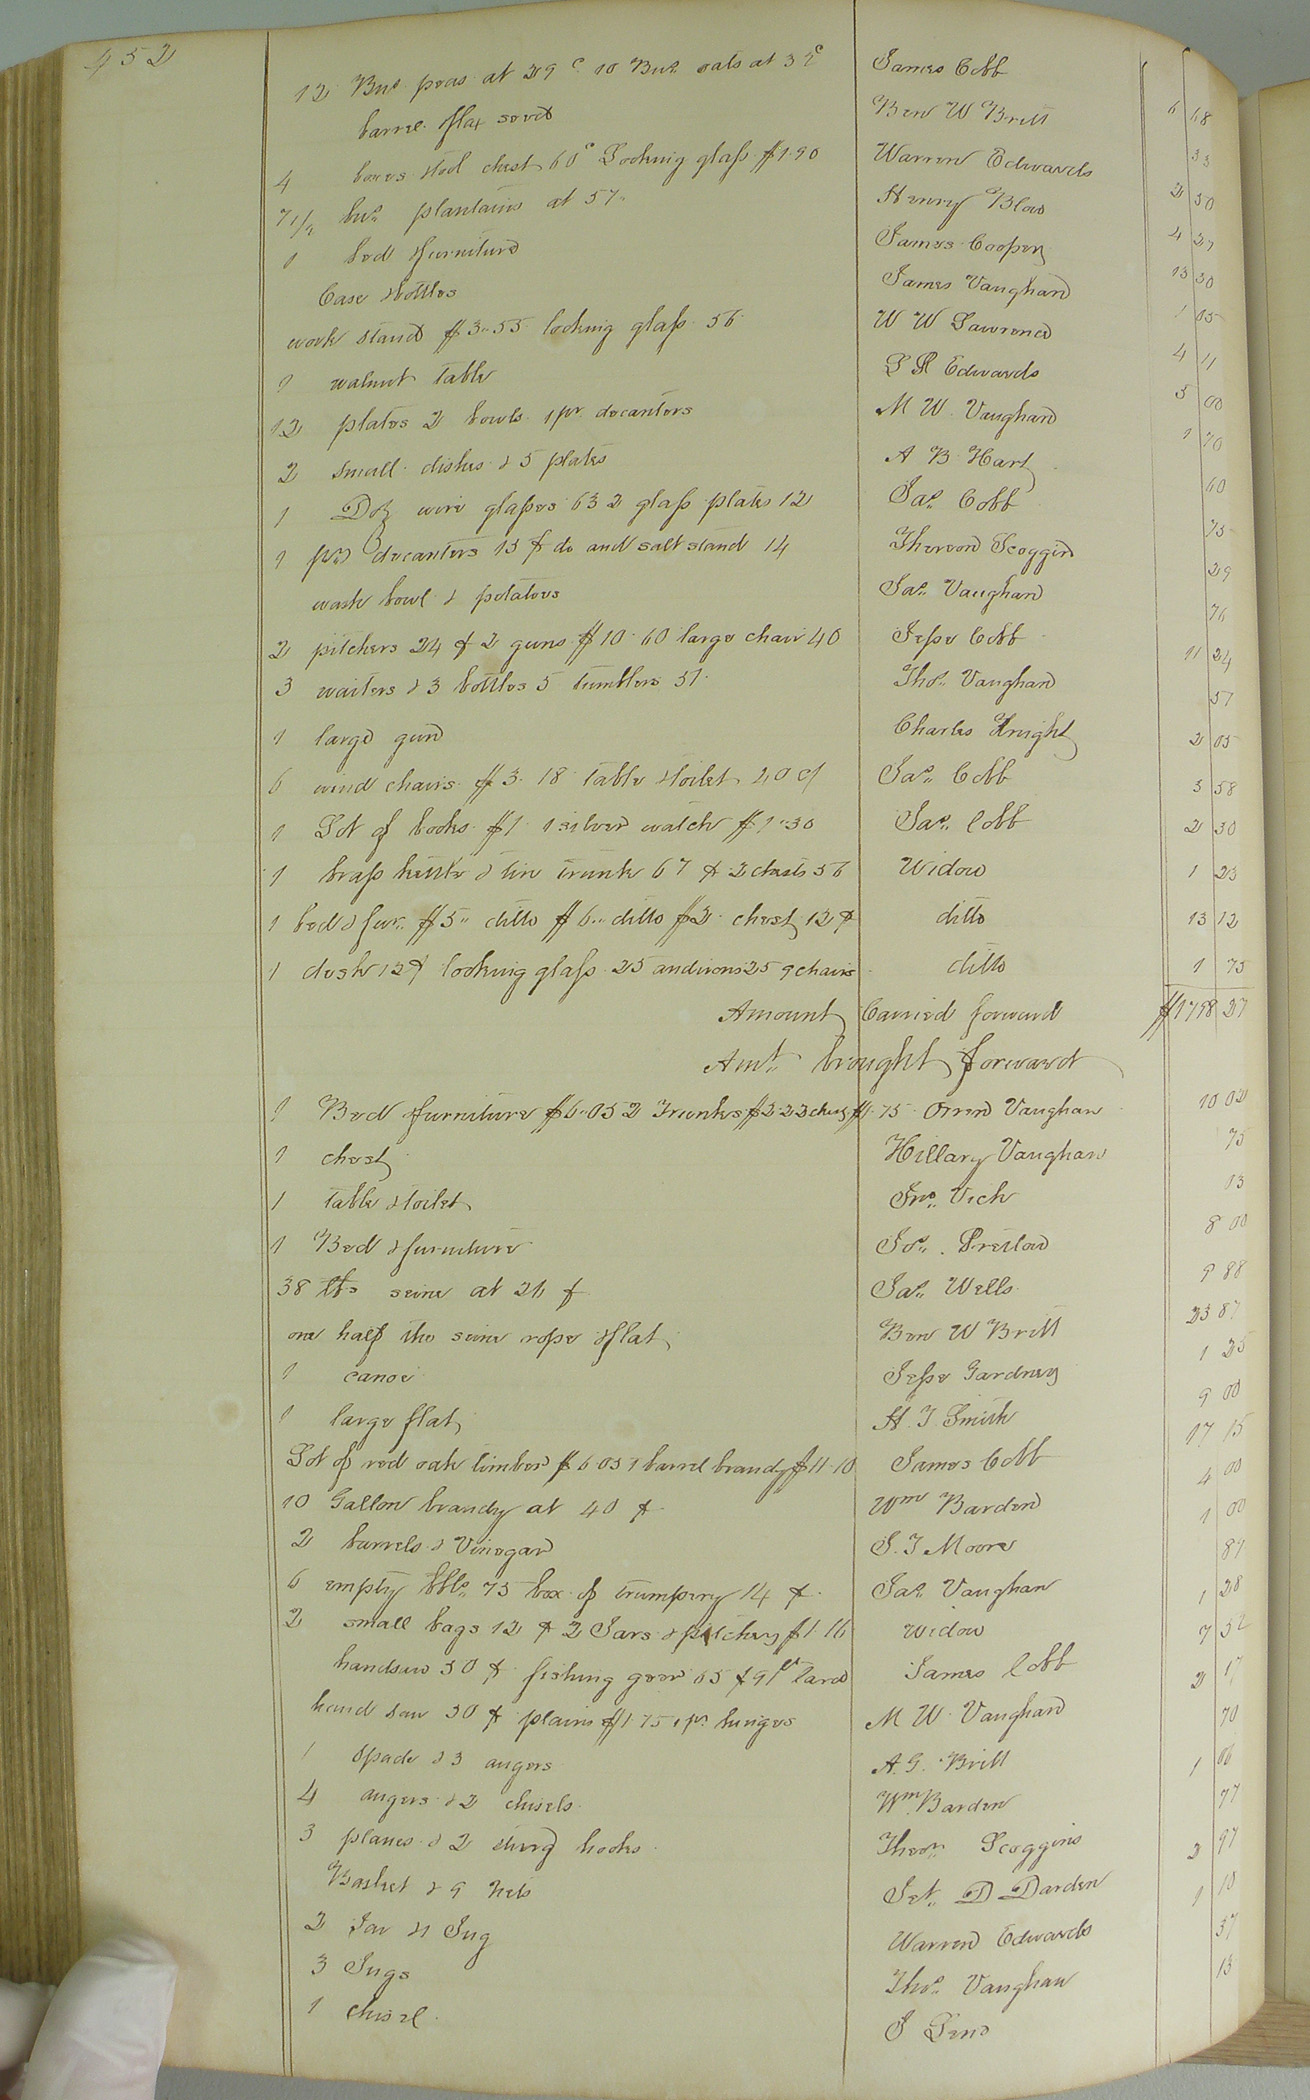 452
12 Bus peas at 29 c 10 Bus oats at 32 c James Cobb 6 68
barrel flax seed Ben W Britt 33
4 boxes &tool chest 60 c Looking glass $1.90 Warren Edwards 2 50
7 1/2 bus plantains at 57 Henry Blow 4 27
1 bed &furniture James Cooper 13 30
Case &bottles James Vaughan 1 05
work stand $3.55 looking glass 56 W W Lawrence 4 11
1 walnut table S R Edwards 5 00
12 plates 2 bowls 1 pr decanters M W Vaughan 1 70
2 small dishes & 5 plates A B Hart 60
1 Doz wine glasses 63 2 glass plates 12 Jas Cobb 75
1 pr decanters 15 ¢ do and salt stand 14 Thereon Scoggin 29
wash bowl & potatoes Jas Vaughan 76
2 pitchers 24 ¢ 2 guns $10.60 large chair 40 Jesse Cobb 11 24
3 waiters & 3 bottles 5 tumblers 57 Thos Vaughan 57
1 large gun Charles Knight 2 05
6 wind chairs $3.18 table &toilet 40 c Jas Cobb 3 58
1 Lot of books $1 1 silver watch $1.30 Jas Cobb 2 30
1 brass kettle & tin trunk 67 ¢ 2 chests 56 Widow 1 23
1 bed & fur $5 ditto $6 ditto $2 chest 12 ¢ ditto 13 12
1 desk 12 ¢ looking glass 25 andirons 25 9 chairs ditto 1 75
Amount Carried forward $1798 27
Amt brought forward
1 Bed &furniture $6.05 2 Trunks $2.22 chest $1.75 Orren Vaughan 10 02
1 chest Hillary Vaughan 75
1 table &toilet Jno Vick 13
1 Bed &furniture Jos Pretlow 8 00
38 lbs seine at 26 ¢ Jas Wells 9 88
one half the seine rope &flat Ben W Britt 23 87
1 canoe Jesse Gardner 1 25
1 large flat H T Smith 9 00
Lot of red oak timber $6.05 1 barrel brandy $11.10 James Cobb 17 15
10 Gallon brandy at 40 ¢ Wm Barden 4 00
2 barrels & Vinegar S. T Moore 1 00
6 empty bbls 73 box of trumpery 14 ¢ Jas Vaughan 87
2 small bags 12 ¢ 2 Jars & pitcher $1.16 widow 1 28
handsaw 50 ¢ fishing gear 65 ¢ 91 lb lard James Cobb 7 52
hand saw 30 ¢ plains $1.75 1 pr hinges M W Vaughan 2 17
1 spade & 3 augers A. G. Britt 70
4 augers & 2 chisels Wm Barden 1 06
3 planes & 2 hooks Theo Scoggins 77
Basket & 9 Nets Jet D Darden 2 97
2 Jar &1 Jug Warren Edwards 1 10
3 Jugs Thos Vaughan 37
1 chisel J 13